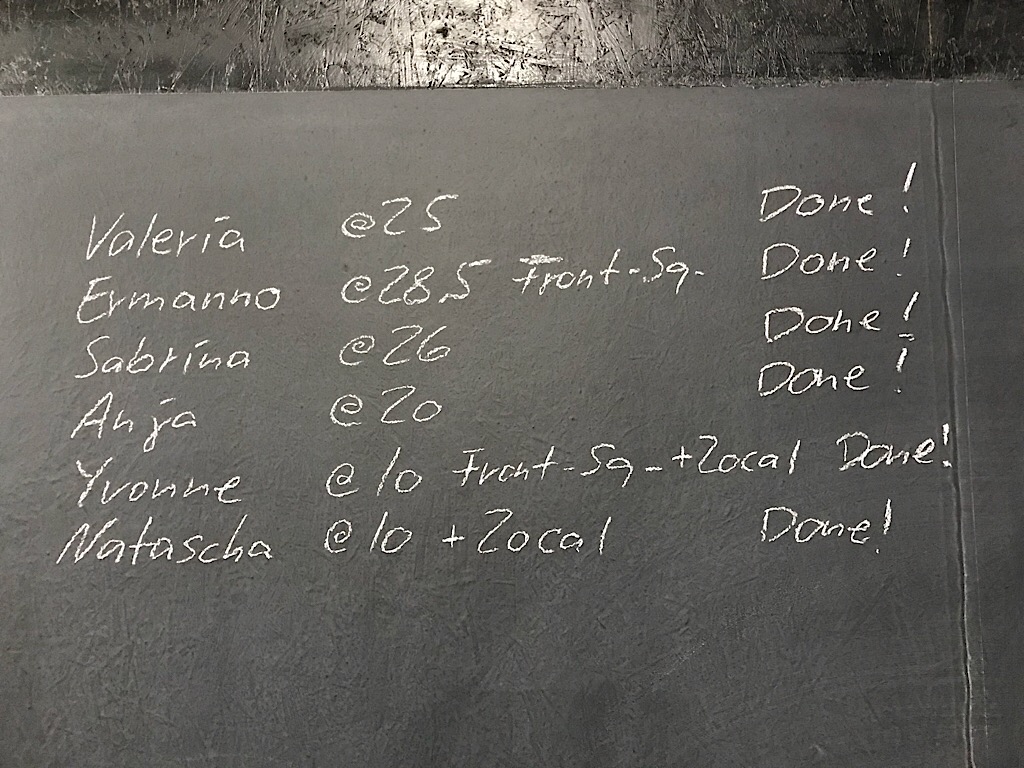 Valeria @25 Done!
Ermanno @28.5 Front-Sq- Done!
Sabrina @26 Done!
Anja @20 Done!
Yvonne @10 Front-Sq-+2ocal Done!
Natascha @10 +2ocal Done!